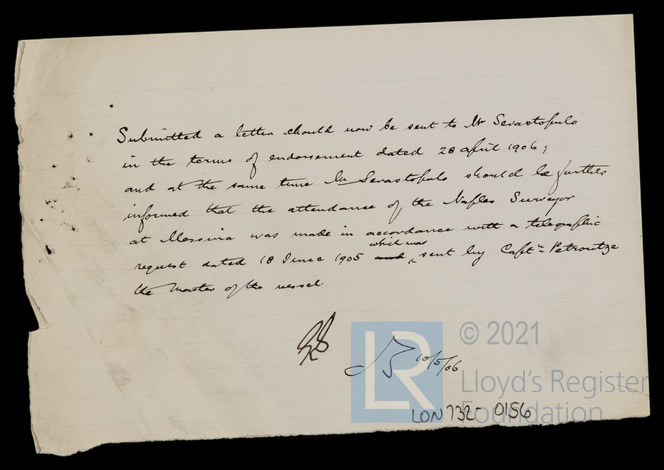 Submitted a letter should now be sent to Mr Sevastopulo
in the terms of endorsement dated 28 April 1906;
and at the same time Mr Sevastopulo should be further
informed that the attendance of the Naples Surveyor
at Messina was made in accordance with a telegraphic
request dated 18 June 1905 which was sent by Captn Petroutze
the Master of the vessel.
10/5/06
LR
© 2021
Lloyd's Register
Foundation
LON732-0156